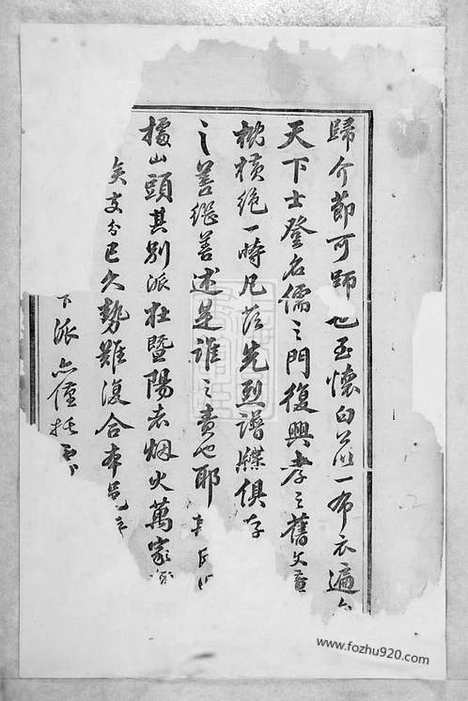 歸介節可師也至懷白公一布衣遍
天下士登名儒之門復興孝之舊文
枕橫絕一時凡茲先烈譜牒俱存
之善繼善述是誰之責也耶
據山頭其別派在暨陽者烟火萬家
矣支分已久勢難復合
下派亦僅
www.fozhu920.com